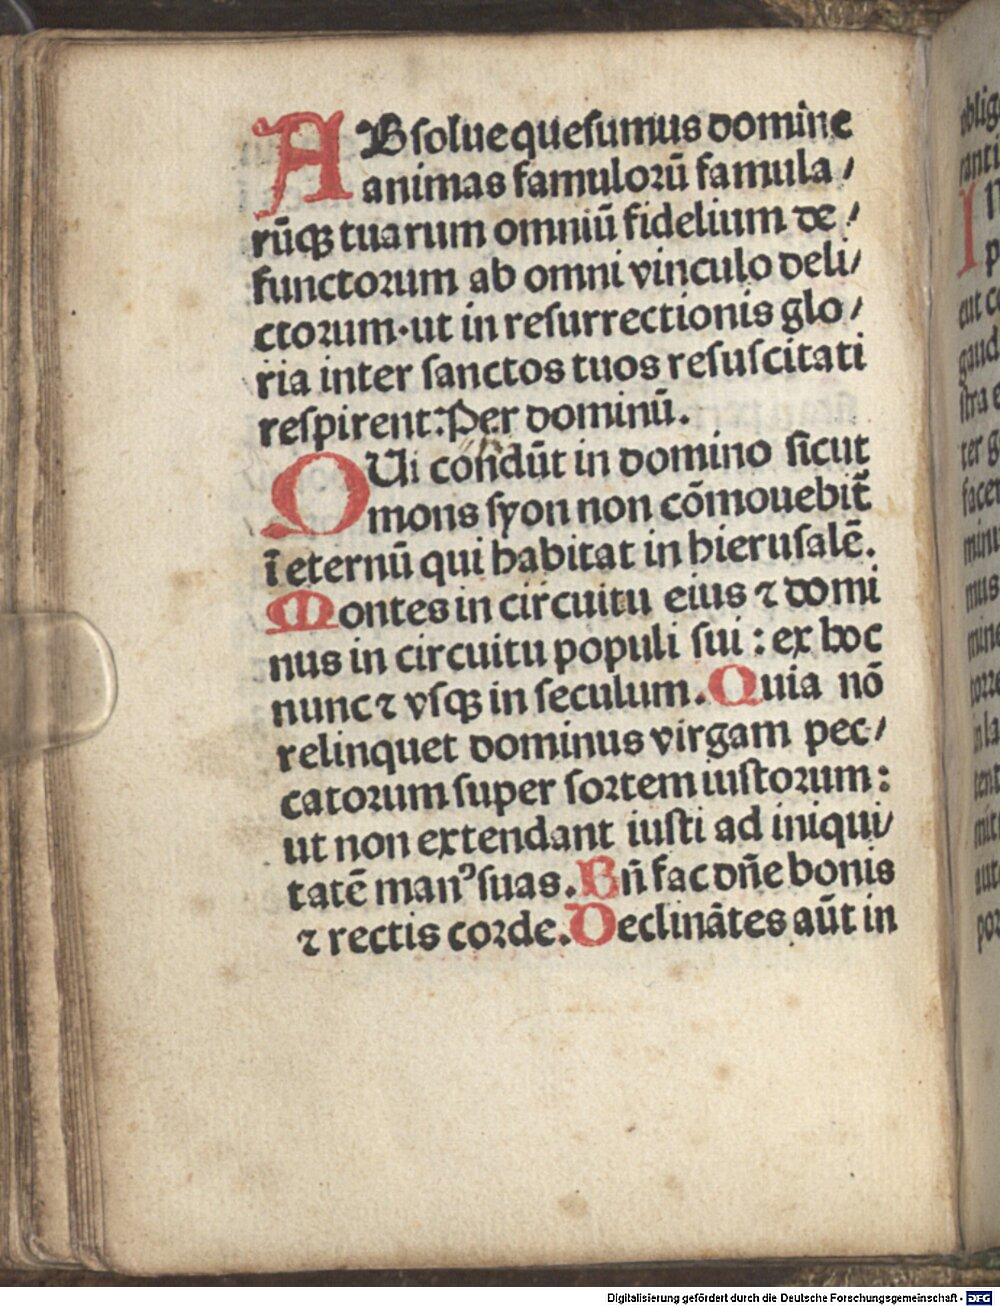 ABsolue quesumus domine
animas famulorū famula/
rūqꝫ tuarum omniū fidelium de/
functorum ab omni vinculo deli/
ctorum·ut in resurrectionis glo/
ria inter sanctos tuos resuscitati
respirent:Per dominū.
QUi confidūt in domino sicut
mons syon non cōmouebit̄
ī eternū qui habitat in hierusalē.
Montes in circuitu eius ⁊ domi
nus in circuitu populi sui : ex hoc
nunc ⁊ vsqꝫ in seculum. Quia nō
relinquet dominus virgam pec/
catorum super sortem iustorum:
ut non extendant iusti ad iniqui/
tatē manꝰ suas. Bn̄ fac dn̄e bonis
⁊ rectis corde. Declinātes aūt in
Digitalisierung gefördert durch die Deutsche Forschungsgemeinschaft - DFG